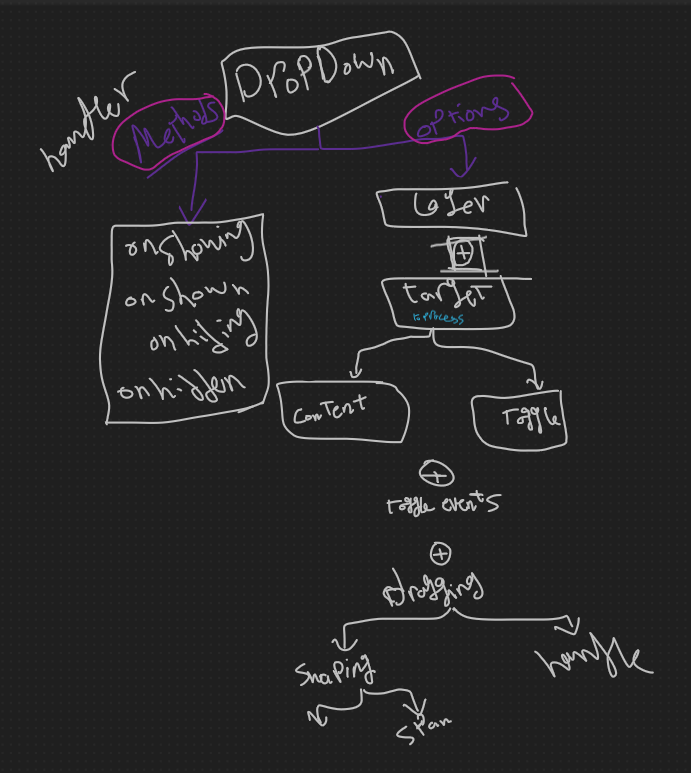 DropDown
handler
Methods
options
onshowing
onshown
onhiding
onhidden
target
to process
content
Toggle
Toggle events
Dragging
handle
Span